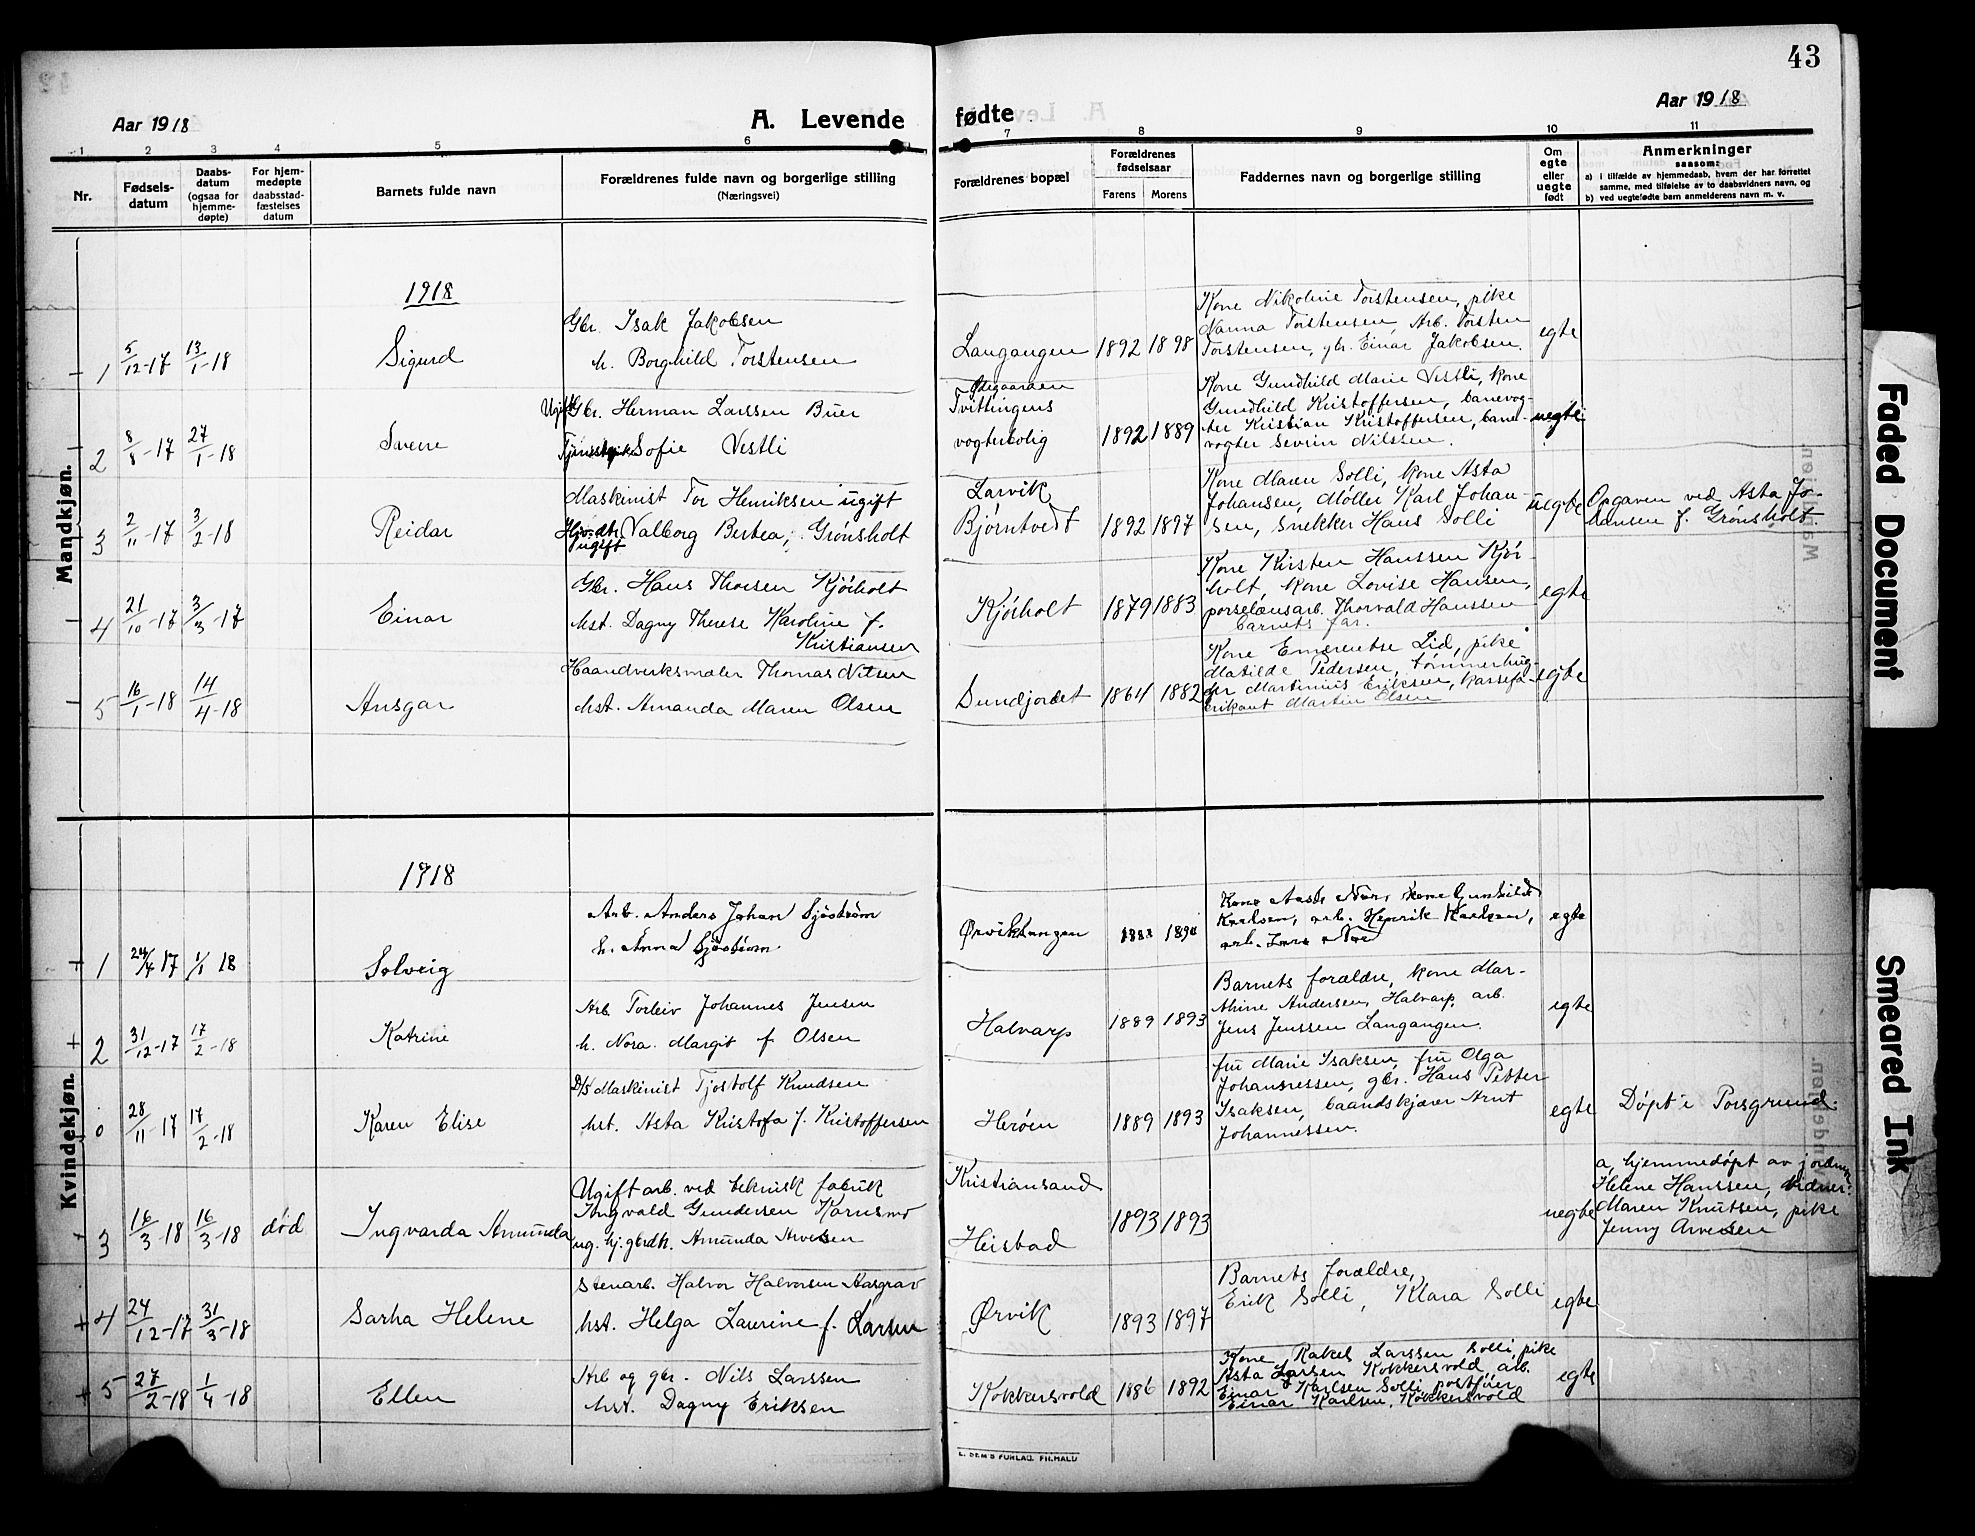 43
Aar 1918
A. Levende
fødte
Aar 1918
1 2 3 4 5 6 7 8 9 10 11
Nr.
Fødsels-
datum
Daabs-
datum
(ogsaa for
hjemme-
døpte)
For hjem-
medøpte
daabsstad-
fæstelses
datum
Barnets fulde navn
Forældrenes fulde navn og borgerlige stilling
(Næringsvei)
Forældrenes bopæl
Forældrenes
fødselsaar
Farens Morens
Faddernes navn og borgerlige stilling
Om
egte
eller
uegte
født
Anmerkninger
saasom:
a) i tilfælde av hjemmedaab, hvem der har forrettet
samme, med tilføielse av to daabsvidners navn, og
b) ved uegtefødte barn anmelderens navn m. v.
Mandkjøn.
1918
1 5/12-17 13/1-18
Sigurd
Gbr. Isak Jakobsen
h. Borghild Torstensen
Langangen
1892 1898
Kone Nikoline Torstensen, pike
Nanna Torstensen, Arb. Torsten
Torstensen, gbr. Einar Jakobsen.
egte
2 8/8-17 27/1-18
Sverre
Ugift Gbr. Herman Larssen Buer
Sofie Vestli
Ødegaarden
Tvittingens
vogterbolig
1892 1889
Kone Gundhild Marie Vestli, kone
Gundhild Kristoffersen, banevog-
ter Kristian Kristoffersen, bane-
vogter Severin Nilssen.
uegte
3 2/11-17 3/2-18
Reidar
Maskinist Tor Henriksen ugift
Valborg Bertea, Grønsholt
ugift
Larvik
Bjørntvedt
1892 1897
Kone Maren Solli, kone Asta
Johansen, Møller Karl Johan-
sen, snekker Hans Solli
uegte
Opgaven ved Asta Jo-
hansen f. Grønsholt
4 21/10-17 3/3-17
Einar
Gbr. Hans Thorsen Kjørholt
hst. Dagny Therese Karoline f.
Kristiansen
Kjørholt
1879 1883
Kone Kirsten Hanssen Kjør-
holt, kone Lovise Hansen,
porselænsarb. Thorvald Hanssen
barnets far.
egte
5 16/1-18 14/4-18
Ansgar
Haandverksmaler Thomas Nilsen
hst. Amanda Maren Olsen
Sundjordet
1864 1882
Kone Emerentse Lid, pike
Matilde Pedersen, tømmerhug-
ger Martinius Eriksen, kassefa-
brikant Martin Olsen
egte
Kvindekjøn.
1918
1 24/4 17 1/1 18
Solveig
Arb. Anders Johan Sjöström
h. Anna Sjöström.
Ørviktangen
Karlsen, arb. Henrik Karlsen,
egte
2 31/12-17 17/2-18
Katrine
Arb. Torleiv Johannes Jensen
h. Nora Margit f Olsen
Halvarp
1889 1893
Barnets forældre, kone Mar-
thine Andersen, Halvarp, arb.
Jens Jenssen Langangen.
egte
0 28/11-17 17/2-18
Karen Elise
D/S Maskinist Tjostolf Knudsen
hst. Asta Kristofa f. Kristoffersen
Herøen
1889 1893
fru Marie Isaksen, fru Olga
Johannessen, gbr. Hans Petter
Isaksen, baandskjærer Arnt
Johannessen.
egte
Døpt i Porsgrund.
3 16/3-18 16/3-18 død
Ingvarda Amunda
Ugift arb. ved teknisk fabrik
Ingvald Gundersen Kornsmo
ug. hj. gbrdt. Amunda Arvesen
Kristiansand
Heistad
1893 1893
uegte
a, hjemmedøpt av jordmor
Helene Hanssen, vidner:
Maren Knutsen, pike
Jenny Arvesen
4 24/12-17 31/3-18
Sarha Helene
Stenarb. Halvor Halvorsen Aasgrav
hst. Helga Laurine f. Larsen
Ørvik
1893 1897
Barnets forældre,
Erik Solli, Klara Solli
egte
5 27/2-18 1/4-18
Ellen
Arb og gbr. Nils Larssen
hst. Dagny Eriksen
Kokkersvold
1886 1892
Kone Rakel Larssen Solli, pike
Asta Larsen Kokkersvold, arb.
Einar Karlsen Solli, postfører
Einar Karlsen, Kokkersvold
egte
E. SEM'S FORLAG, FR.HALD
Faded Document
Smeared Ink